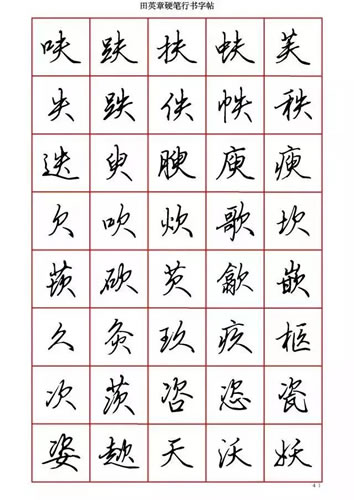 田英章硬笔行书字帖
呋 趺 扶 蚨 芙
失 跌 佚 帙 秩
迭 臾 腴 庾 瘐
欠 吹 炊 歌 坎
莰 砍 芡 歙 嵌
久 灸 玖 疚 柩
次 茨 咨 恣 瓷
姿 趑 天 沃 妖